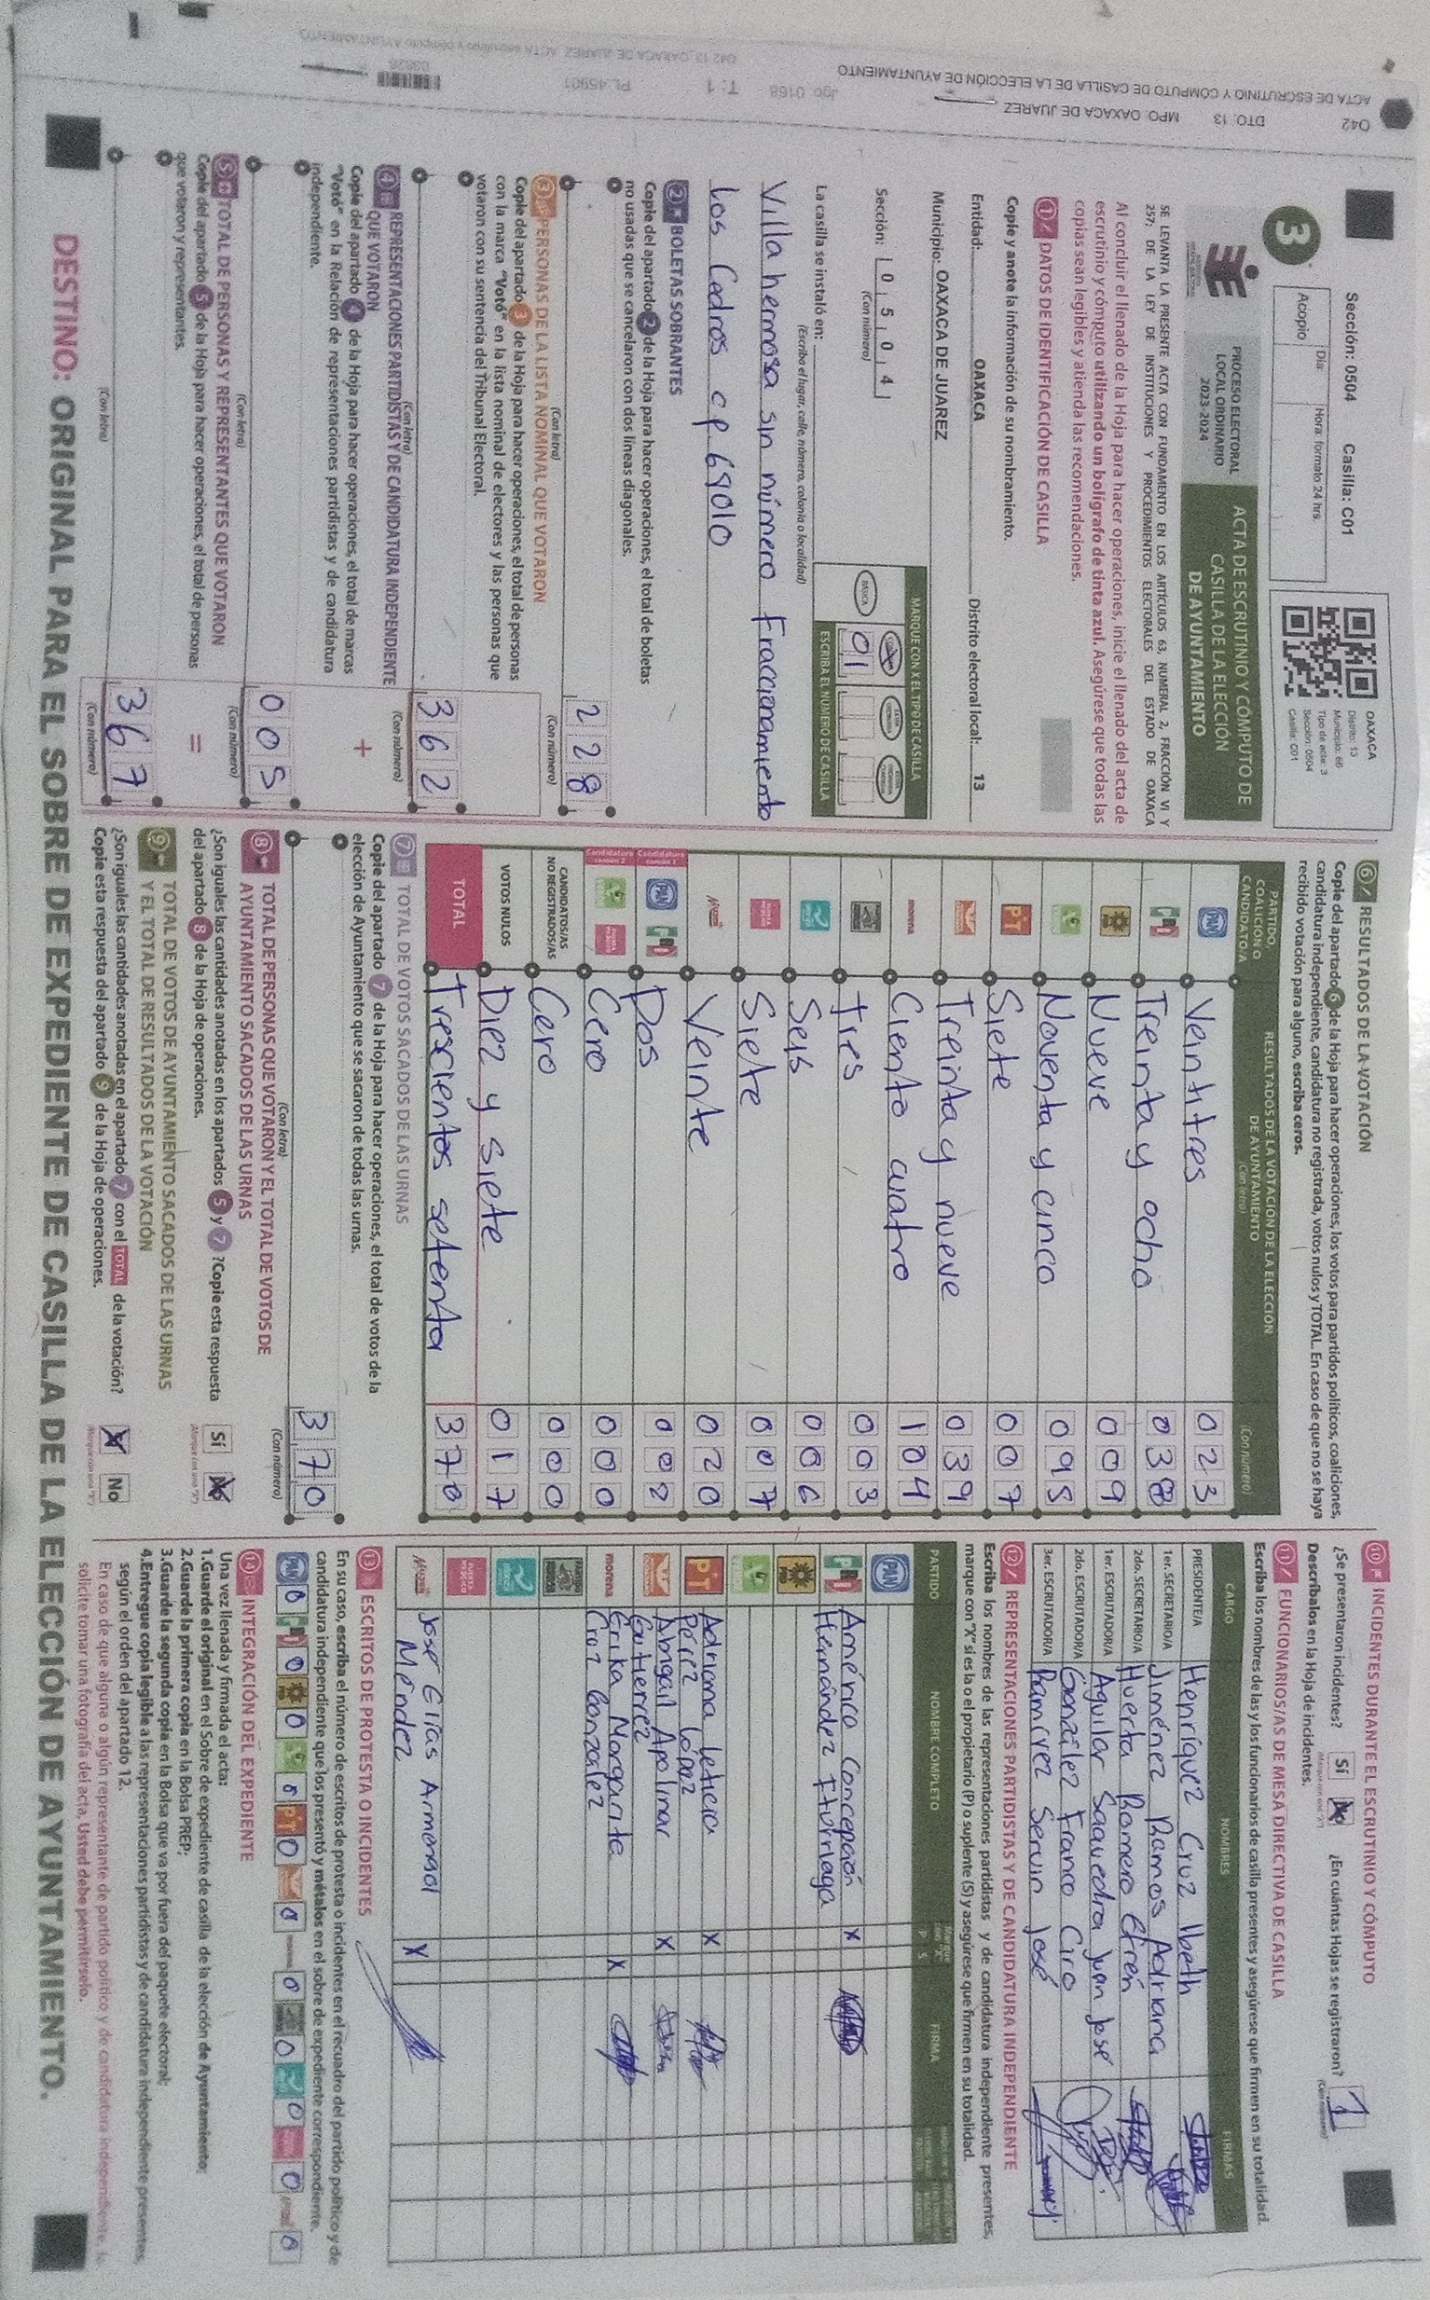 042 DTO. 13 MPO. OAXACA DE JUAREZ
ACTA DE ESCRUTINIO Y CÓMPUTO DE CASILLA DE LA ELECCIÓN DE AYUNTAMIENTO
Sección: 0504 Casilla: C01
3
Acopio
Día:
Hora: formato 24 hrs.
OAXACA
Distrito: 13
Municipio: 66
Tipo de acta: 3
Sección: 0504
Casilla: C01
PROCESO ELECTORAL
LOCAL ORDINARIO
2023-2024
ACTA DE ESCRUTINIO Y CÓMPUTO DE
CASILLA DE LA ELECCIÓN
DE AYUNTAMIENTO
SE LEVANTA LA PRESENTE ACTA CON FUNDAMENTO EN LOS ARTÍCULOS 63, NUMERAL 2, FRACCIÓN VI Y
257; DE LA LEY DE INSTITUCIONES Y PROCEDIMIENTOS ELECTORALES DEL ESTADO DE OAXACA
Al concluir el llenado de la Hoja para hacer operaciones, inicie el llenado del acta de
escrutinio y cómputo utilizando un bolígrafo de tinta azul. Asegúrese que todas las
copias sean legibles y atienda las recomendaciones.
1 DATOS DE IDENTIFICACIÓN DE CASILLA
Copie y anote la información de su nombramiento.
Entidad: OAXACA Distrito electoral local: 13
Municipio: OAXACA DE JUAREZ
Sección: 0 5 0 4
(Con número)
MARQUE CON X EL TIPO DE CASILLA
BÁSICA
01
ESCRIBA EL NÚMERO DE CASILLA
La casilla se instaló en:
(Escriba el lugar, calle, número, colonia o localidad)
Villa hermosa sin número Fraccionamiento
los Cedros cp. 69010
2 BOLETAS SOBRANTES
Copie del apartado 2 de la Hoja para hacer operaciones, el total de boletas
no usadas que se cancelaron con dos líneas diagonales.
228
(Con letra) (Con número)
3 PERSONAS DE LA LISTA NOMINAL QUE VOTARON
Copie del apartado 3 de la Hoja para hacer operaciones, el total de personas
con la marca "Votó" en la lista nominal de electores y las personas que
votaron con su sentencia del Tribunal Electoral.
362
(Con letra) (Con número)
4 REPRESENTACIONES PARTIDISTAS Y DE CANDIDATURA INDEPENDIENTE
QUE VOTARON
Copie del apartado 4 de la Hoja para hacer operaciones, el total de marcas
"Votó" en la Relación de representaciones partidistas y de candidatura
independiente.
+
005
(Con letra) (Con número)
5 TOTAL DE PERSONAS Y REPRESENTANTES QUE VOTARON
Copie del apartado 5 de la Hoja para hacer operaciones, el total de personas
que votaron y representantes.
=
367
(Con letra) (Con número)
6 RESULTADOS DE LA VOTACIÓN
Copie del apartado 6 de la Hoja para hacer operaciones, los votos para partidos políticos, coaliciones,
candidatura independiente, candidatura no registrada, votos nulos y TOTAL. En caso de que no se haya
recibido votación para alguno, escriba ceros.
PARTIDO,
COALICIÓN O
CANDIDATO/A
RESULTADOS DE LA VOTACIÓN DE LA ELECCIÓN
DE AYUNTAMIENTO
(Con letra) (Con número)
PAN Veintitres 023
Treinta y ocho 038
Nueve 009
Noventa y cinco 095
PT Siete 007
Treinta y nueve 039
morena Ciento cuatro 104
Tres 003
Seis 006
Siete 007
Veinte 020
PAN Dos 002
Cero 000
CANDIDATOS/AS
NO REGISTRADOS/AS Cero 000
VOTOS NULOS Diez y siete 017
TOTAL Trescientos setenta 370
7 TOTAL DE VOTOS SACADOS DE LAS URNAS
Copie del apartado 7 de la Hoja para hacer operaciones, el total de votos de la
elección de Ayuntamiento que se sacaron de todas las urnas.
370
(Con letra) (Con número)
8 TOTAL DE PERSONAS QUE VOTARON Y EL TOTAL DE VOTOS DE
AYUNTAMIENTO SACADOS DE LAS URNAS
¿Son iguales las cantidades anotadas en los apartados 5 y 7 ?Copie esta respuesta
del apartado 8 de la Hoja de operaciones.
Sí No
9 TOTAL DE VOTOS DE AYUNTAMIENTO SACADOS DE LAS URNAS
Y EL TOTAL DE RESULTADOS DE LA VOTACIÓN
¿Son iguales las cantidades anotadas en el apartado 7 con el TOTAL de la votación?
Copie esta respuesta del apartado 9 de la Hoja de operaciones.
No
10 INCIDENTES DURANTE EL ESCRUTINIO Y CÓMPUTO
¿Se presentaron incidentes? Sí No ¿En cuántas Hojas se registraron? 1
Descríbalos en la Hoja de incidentes.
11 FUNCIONARIOS/AS DE MESA DIRECTIVA DE CASILLA
Escriba los nombres de las y los funcionarios de casilla presentes y asegúrese que firmen en su totalidad.
CARGO NOMBRES FIRMAS
PRESIDENTE/A Henríquez Cruz Ibeth
1er. SECRETARIO/A Jiménez Ramos Adriana
2do. SECRETARIO/A Huerta Romero Efrén
1er. ESCRUTADOR/A Aguilar Saavedra Juan José
2do. ESCRUTADOR/A González Franco Ciro
3er. ESCRUTADOR/A Ramírez Servin José
12 REPRESENTACIONES PARTIDISTAS Y DE CANDIDATURA INDEPENDIENTE
Escriba los nombres de las representaciones partidistas y de candidatura independiente presentes,
marque con "X" si es la o el propietario (P) o suplente (S) y asegúrese que firmen en su totalidad.
PARTIDO NOMBRE COMPLETO P S FIRMA
PAN
Américo Concepción X
Hernández Iturriaga
PT Adriana Leticia X
Pérez López
Abngail Apolinar X
Gutierrez
morena Erika Margarita X
Cruz González
José Elías Armengol X
Méndez
13 ESCRITOS DE PROTESTA O INCIDENTES
En su caso, escriba el número de escritos de protesta o incidentes en el recuadro del partido político y de
candidatura independiente que los presentó y métalos en el sobre de expediente correspondiente.
PAN 0 0 0 0 PT 0 0 morena 0 0 0 0 0
14 INTEGRACIÓN DEL EXPEDIENTE
Una vez llenada y firmada el acta:
1.Guarde el original en el Sobre de expediente de casilla de la elección de Ayuntamiento;
2.Guarde la primera copia en la Bolsa PREP;
3.Guarde la segunda copia en la Bolsa que va por fuera del paquete electoral;
4.Entregue copia legible a las representaciones partidistas y de candidatura independiente presentes,
según el orden del apartado 12.
En caso de que alguna o algún representante de partido político y de candidatura independiente, le
solicite tomar una fotografía del acta, Usted debe permitírselo.
DESTINO: ORIGINAL PARA EL SOBRE DE EXPEDIENTE DE CASILLA DE LA ELECCIÓN DE AYUNTAMIENTO.